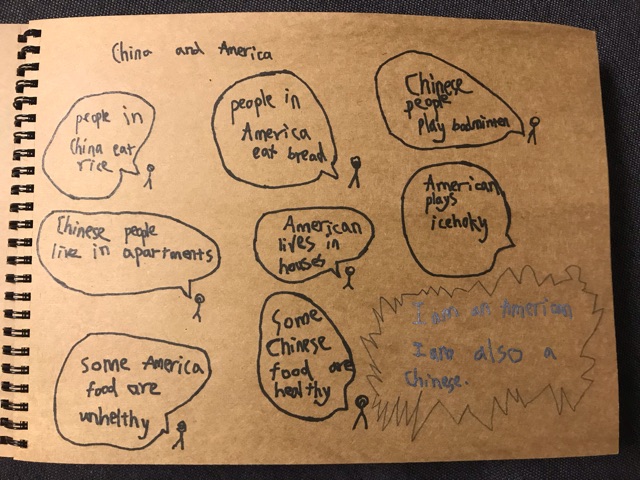 China and America
people in
China eat
rice
people in
America
eat bread
Chinese
people
play badminmen
Chinese people
live in apartments
American
lives in
houses
American
plays
icehoky
Some America
food are
unhelthy
Some
Chinese
food are
healthy
I am an American
I am also a
Chinese.